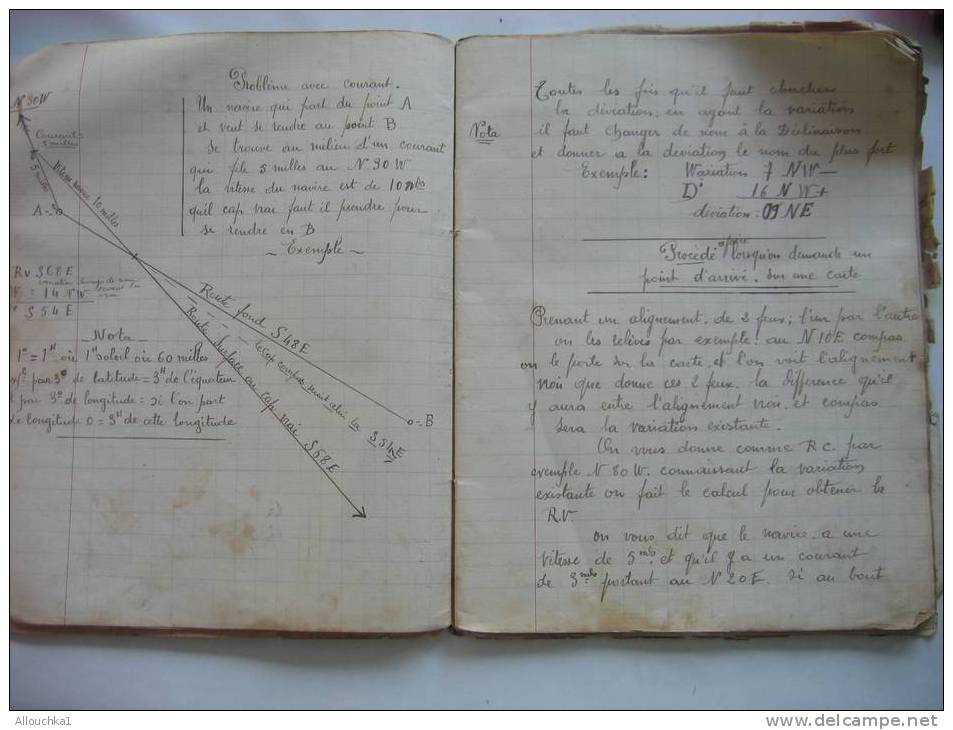 Problème avec courant.
Un navire qui part du point A
et veut se rendre au point B
se trouve au milieu d'un courant
qui file 5 milles au N 30 W
la vitesse du navire est de 10 nds
quel cap vrai faut il prendre pour
se rendre en B
~ Exemple ~
N 30 W
Courant
5 milles
5 milles
Vitesse navire 10 milles
A
B
Route fond S 48 E
Route surface ou cap vrai S 68 E
le cap compas serait celui la S 54 E
Rv S 68 E
= 14 NW
S 54 E
Nota
1° = 1H où 1H soleil où 60 milles
par 3° de latitude = 3H de l'équateur
par 3° de longitude = si l'on part
de longitude 0 = 3H de cette longitude
Toutes les fois qu'il faut chercher
la déviation en ayant la variation
Nota
il faut changer de nom à la Déclinaison
et donner a la deviation le nom du plus fort
Exemple: Wariation 7 NW -
D' 16 NW +
déviation: 09 NE
Procédé à faire lorsqu'on demande un
point d'arrivé sur une carte
Prenant un alignement de 2 feux; l'un par l'autre
on les relève par exemple: au N 10 E compas
on le porte sur la carte, et l'on voit l'alignement
vrai que donne ces 2 feux. la différence qu'il
y aura entre l'alignement vrai, et compas
sera la variation existante.
On vous donne comme R c. par
exemple N 80 W. connaissant la variation
existante on fait le calcul pour obtenir la
R.V
on vous dit que le navire a une
vitesse de 5 nds et qu'il y a un courant
de 3 nds portant au N 20 E. si au bout
Allouchka1
www.delcampe.net